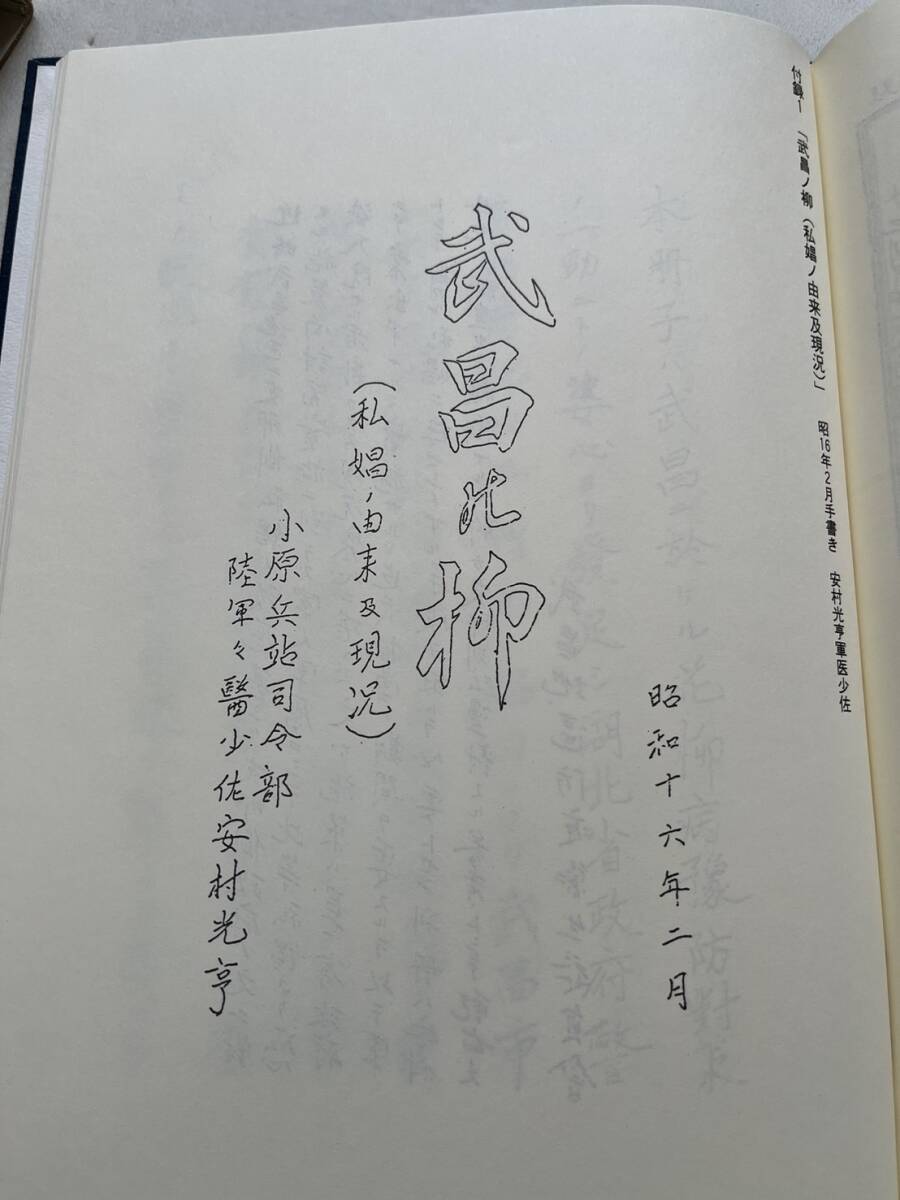 付録1　「武昌ノ柳（私娼ノ由来及現況）」　昭16年2月手書き　安村光亨軍医少佐
昭和十六年二月
武昌の柳
（私娼ノ由来及現況）
小原兵站司令部
陸軍々醫少佐安村光亨